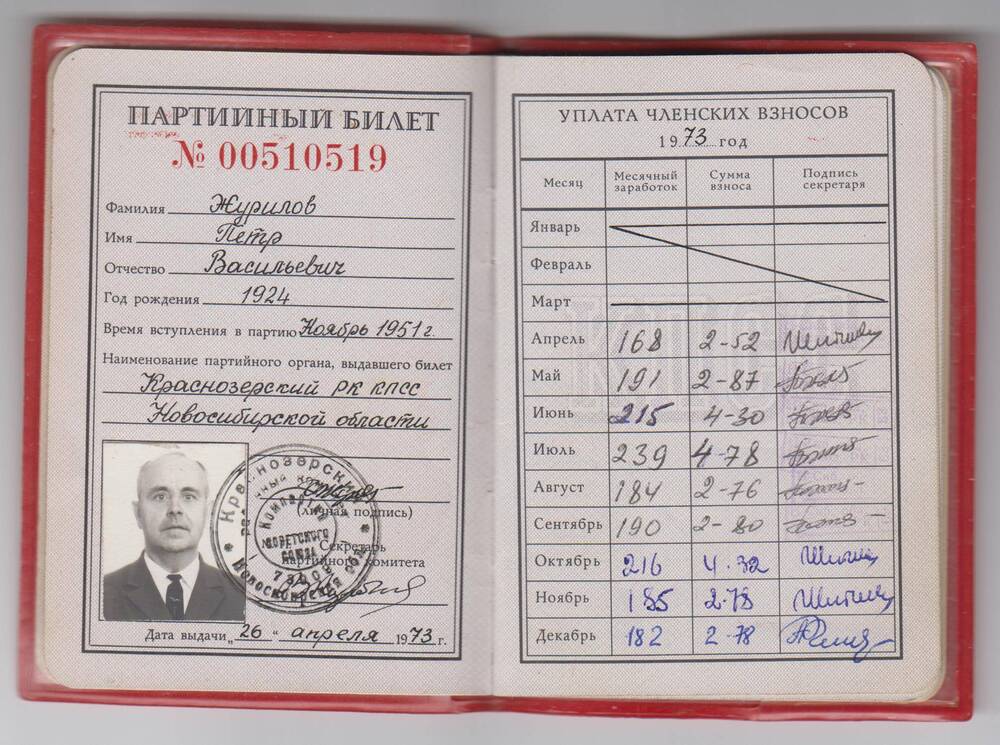 ПАРТИЙНЫЙ БИЛЕТ
№ 00510519
Фамилия Журилов
Имя Петр
Отчество Васильевич
Год рождения 1924
Время вступления в партию Ноябрь 1951 г.
Наименование партийного органа, выдавшего билет
Краснозерский РК КПСС
Новосибирской области
(личная подпись)
Секретарь
партийного комитета
Дата выдачи „26“ апреля 1973 г.
УПЛАТА ЧЛЕНСКИХ ВЗНОСОВ
1973 год
Месяц Месячный заработок Сумма взноса Подпись секретаря
Январь
Февраль
Март
Апрель 168 2-52
Май 191 2-87
Июнь 215 4-30
Июль 239 4-78
Август 184 2-76
Сентябрь 190 2-80
Октябрь 216 4.32
Ноябрь 185 2.78
Декабрь 182 2-78